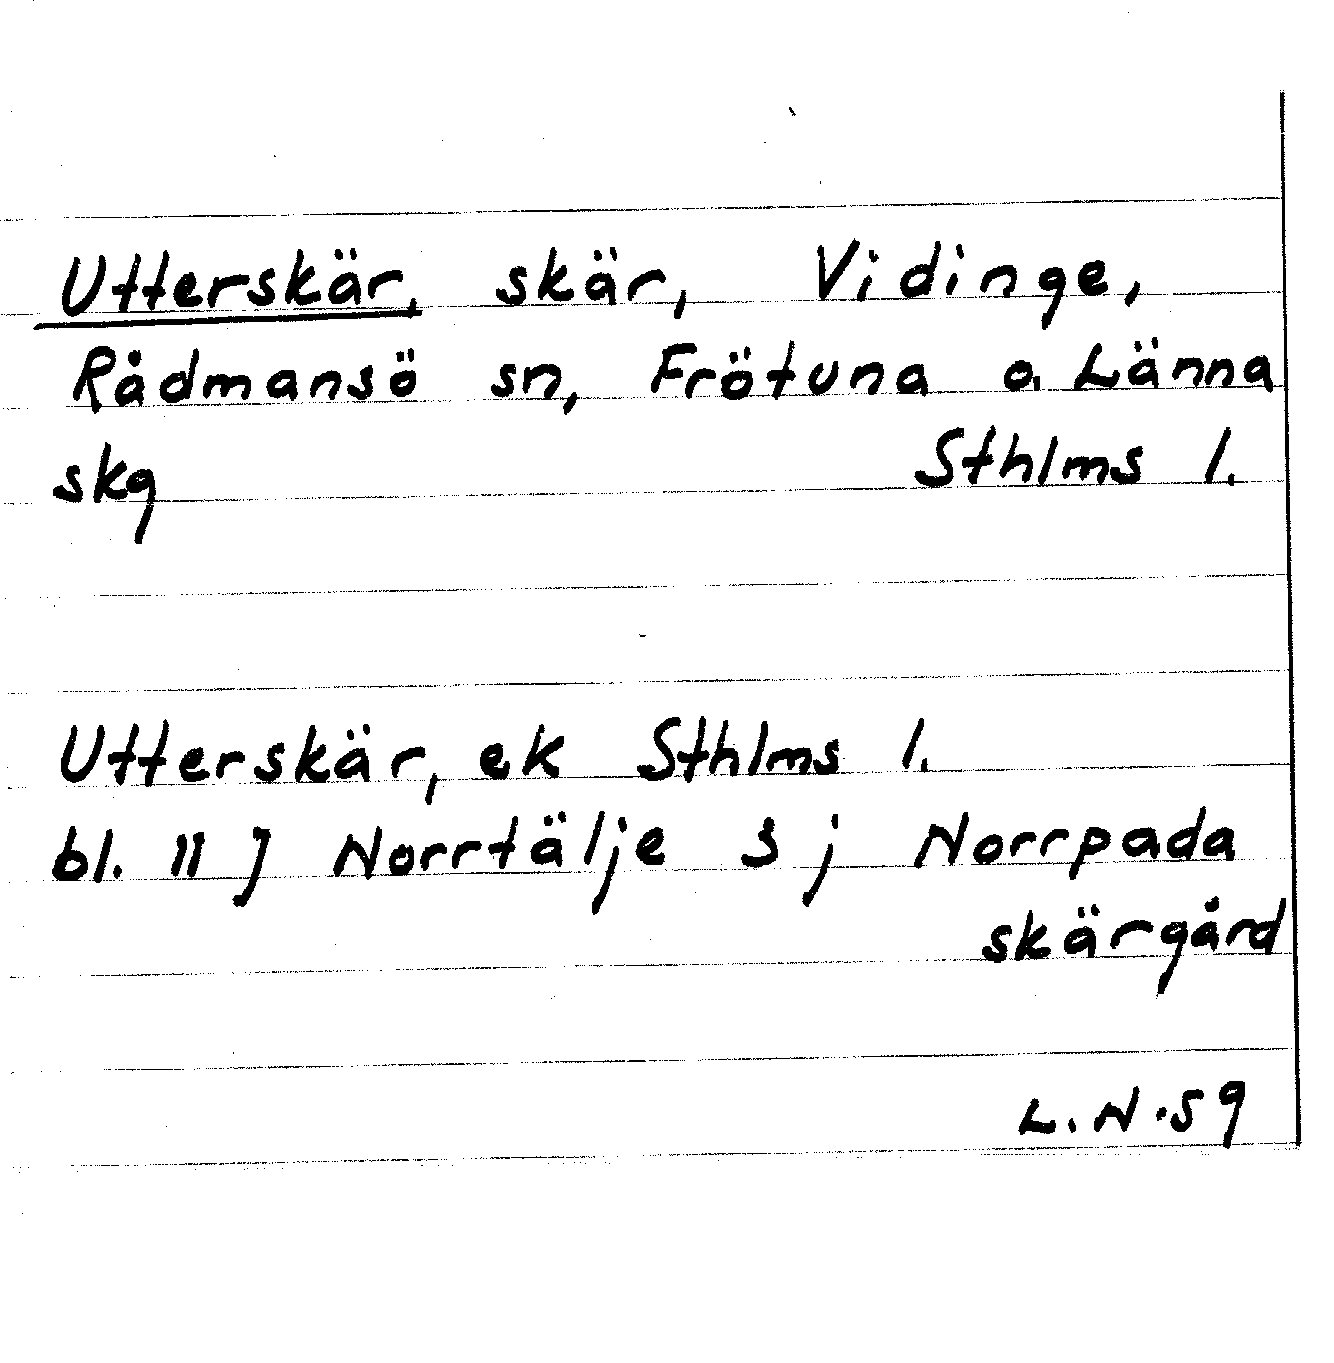 Utterskär, skär, Vidinge,
Rådmansö sn, Frötuna o. Länna
skg Sthlms l.
Utterskär, ek Sthlms l.
bl. 11 J Norrtälje S j Norrpada
skärgård
L.N.59